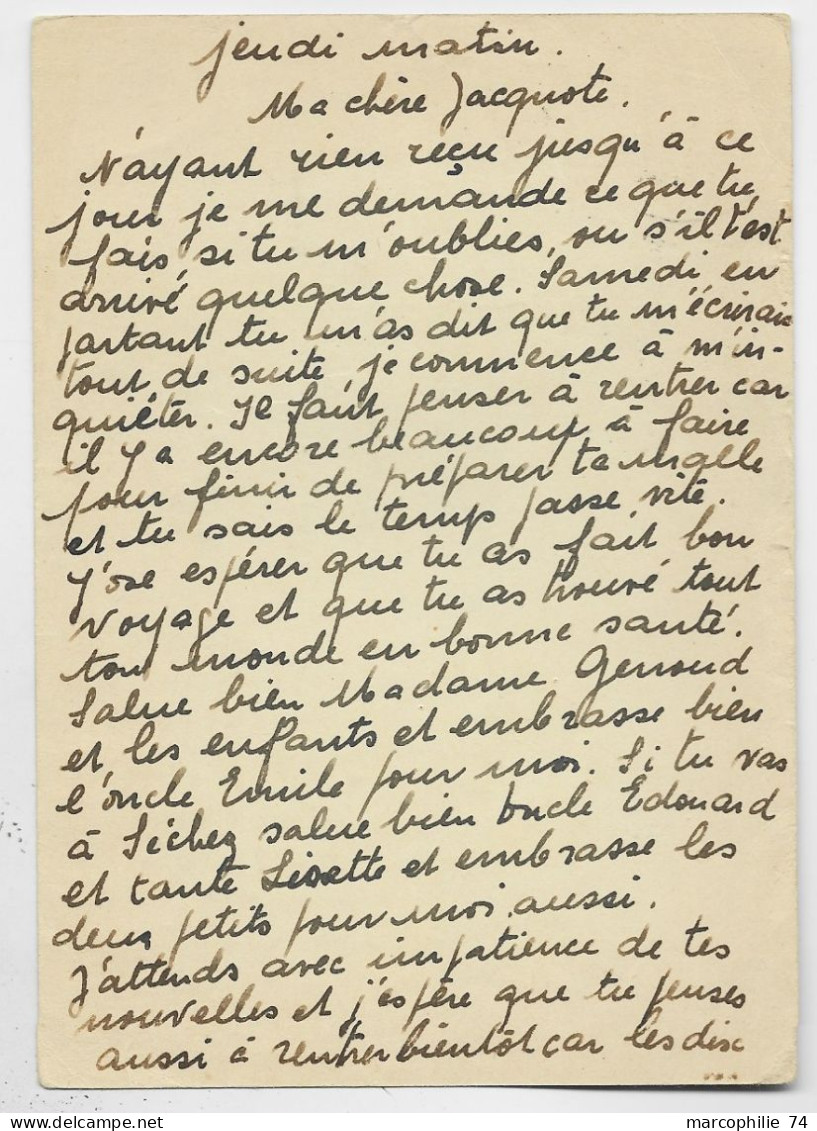 jeudi matin.
Ma chère Jacquote.
N'ayant rien reçu jusqu'à ce
jour je me demande ce que tu
fais, si tu m'oublies, ou s'il t'est
arrivé quelque chose. Samedi en
partant tu m'as dit que tu m'écrirais
tout de suite, je commence à m'in-
quiéter. Il faut penser à rentrer car
il y a encore beaucoup à faire
pour finir de préparer ta malle
et tu sais le temps passe vite.
J'ose espérer que tu as fait bon
voyage et que tu as trouvé tout
ton monde en bonne santé.
Salue bien Madame Genoud
et les enfants et embrasse bien
l'oncle Emile pour moi. Si tu vas
à Séchey salue bien oncle Edouard
et tante Lisette et embrasse les
deux petits pour moi aussi.
J'attends avec impatience de tes
nouvelles et j'espère que tu penses
aussi à rentrer bientôt car les disc
marcophilie 74